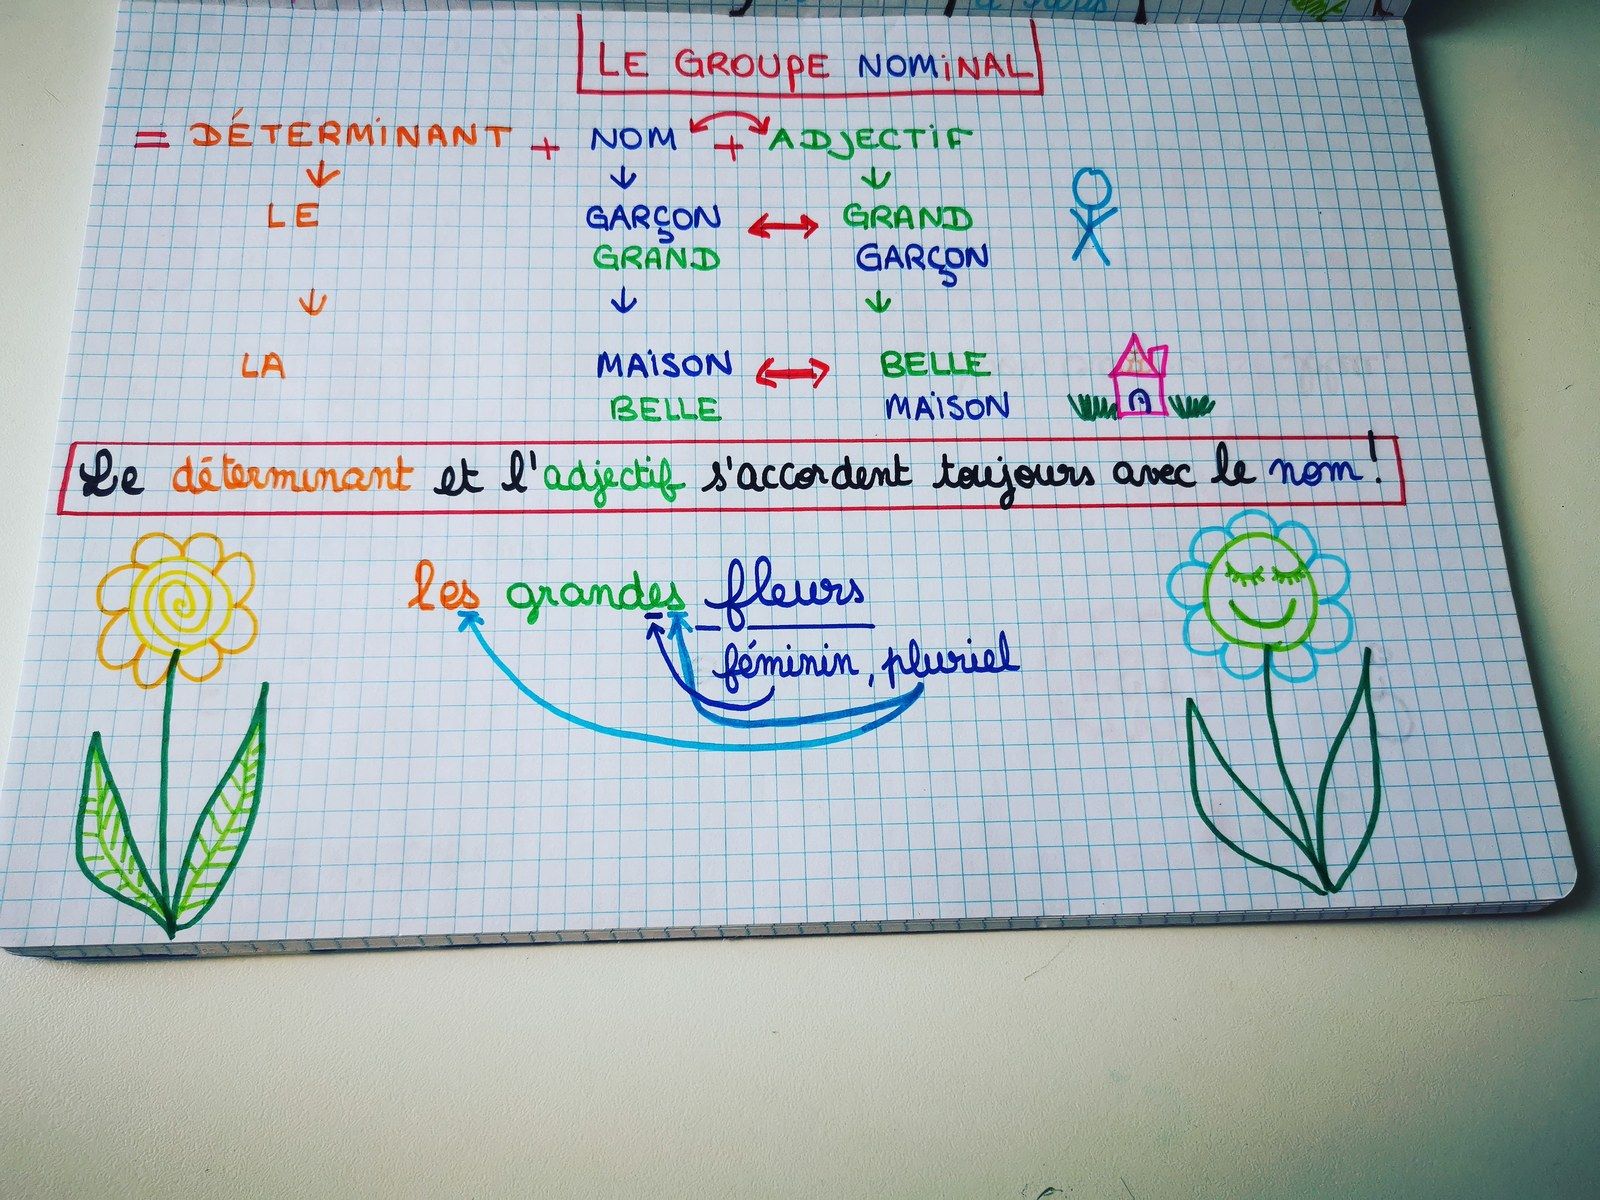 LE GROUPE NOMINAL
= DÉTERMINANT + NOM + ADJECTIF
LE GARÇON GRAND
GRAND GARÇON
LA MAISON BELLE
BELLE MAISON
Le déterminant et l'adjectif s'accordent toujours avec le nom!
les grandes fleurs
féminin, pluriel